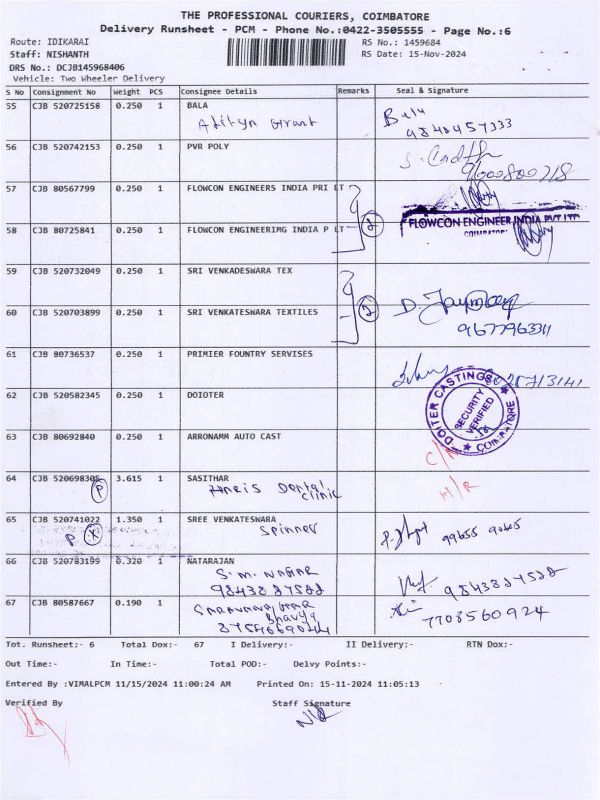 THE PROFESSIONAL COURIERS, COIMBATORE
Delivery Runsheet - PCM - Phone No.:0422-3505555 - Page No.:6
Route: IDIKARAI
RS No.: 1459684
Staff: NISHANTH
RS Date: 15-Nov-2024
DRS No.: DCJB145968406
Vehicle: Two Wheeler Delivery
S No Consignment No Weight PCS Consignee Details Remarks Seal & Signature
55 CJB 520725158 0.250 1 BALA
Bala
9848457333
56 CJB 520742153 0.250 1 PVR POLY
9600800718
57 CJB 80567799 0.250 1 FLOWCON ENGINEERS INDIA PRI LT
2
FLOWCON ENGINEER INDIA PVT LTD
COIMBATORE
58 CJB 80725841 0.250 1 FLOWCON ENGINEERIMG INDIA P LT
59 CJB 520732049 0.250 1 SRI VENKADESWARA TEX
2
60 CJB 520703899 0.250 1 SRI VENKATESWARA TEXTILES
61 CJB 80736537 0.250 1 PRIMIER FOUNTRY SERVISES
62 CJB 520582345 0.250 1 DOIOTER
DOITER CASTINGS
SECURITY
VERIFIED
COIMBATORE
63 CJB 80692840 0.250 1 ARRONAMM AUTO CAST
64 CJB 520698305 3.615 1 SASITHAR
P
Dental
clinic
H/R
65 CJB 520741022 1.350 1 SREE VENKATESWARA
P X
Spinners
66 CJB 520783199 0.320 1 NATARAJAN
S.M. NAGAR
9843827522
9843827522
67 CJB 80587667 0.190 1
Bhavya
7708560924
Tot. Runsheet:- 6 Total Dox:- 67 I Delivery:- II Delivery:- RTN Dox:-
Out Time:- In Time:- Total POD:- Delvy Points:-
Entered By :VIMALPCM 11/15/2024 11:00:24 AM Printed On: 15-11-2024 11:05:13
Verified By Staff Signature